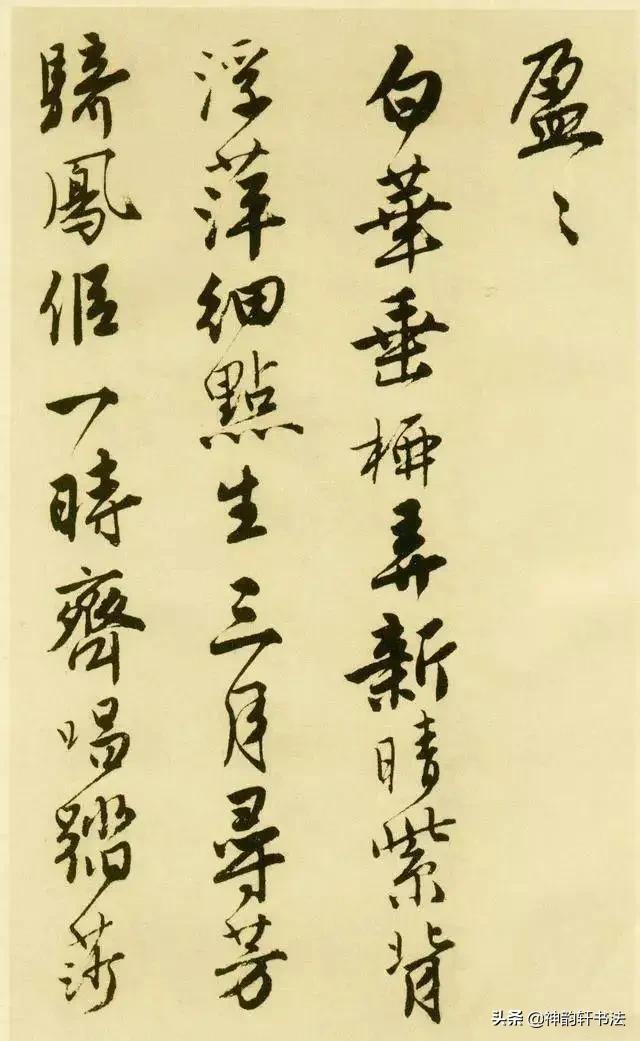 盈〻
白華垂柳弄新晴紫背
浮萍細點生三月尋芳
騎鳳侣一時齊唱踏莎
头条@神韵轩书法